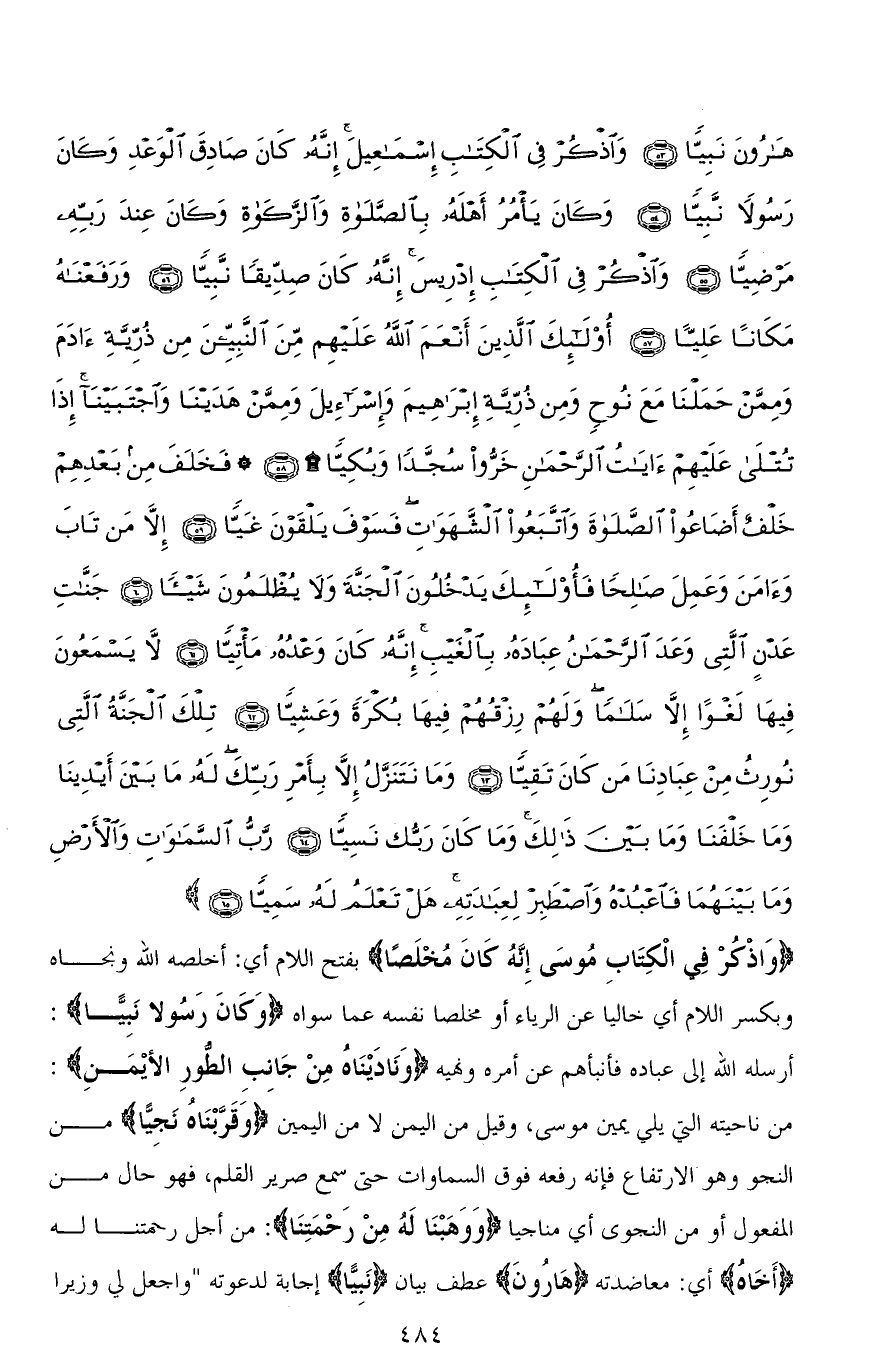 هَـٰرُونَ نَبِيًّا ۝٥٣ وَٱذْكُرْ فِى ٱلْكِتَـٰبِ إِسْمَـٰعِيلَ ۚ إِنَّهُۥ كَانَ صَادِقَ ٱلْوَعْدِ وَكَانَ
رَسُولًا نَّبِيًّا ۝٥٤ وَكَانَ يَأْمُرُ أَهْلَهُۥ بِٱلصَّلَوٰةِ وَٱلزَّكَوٰةِ وَكَانَ عِندَ رَبِّهِۦ
مَرْضِيًّا ۝٥٥ وَٱذْكُرْ فِى ٱلْكِتَـٰبِ إِدْرِيسَ ۚ إِنَّهُۥ كَانَ صِدِّيقًا نَّبِيًّا ۝٥٦ وَرَفَعْنَـٰهُ
مَكَانًا عَلِيًّا ۝٥٧ أُو۟لَـٰٓئِكَ ٱلَّذِينَ أَنْعَمَ ٱللَّهُ عَلَيْهِم مِّنَ ٱلنَّبِيِّـۧنَ مِن ذُرِّيَّةِ ءَادَمَ
وَمِمَّنْ حَمَلْنَا مَعَ نُوحٍ وَمِن ذُرِّيَّةِ إِبْرَٰهِيمَ وَإِسْرَٰٓءِيلَ وَمِمَّنْ هَدَيْنَا وَٱجْتَبَيْنَآ ۚ إِذَا
تُتْلَىٰ عَلَيْهِمْ ءَايَـٰتُ ٱلرَّحْمَـٰنِ خَرُّوا۟ سُجَّدًا وَبُكِيًّا ۩ ۝٥٨ * فَخَلَفَ مِنۢ بَعْدِهِمْ
خَلْفٌ أَضَاعُوا۟ ٱلصَّلَوٰةَ وَٱتَّبَعُوا۟ ٱلشَّهَوَٰتِ ۖ فَسَوْفَ يَلْقَوْنَ غَيًّا ۝٥٩ إِلَّا مَن تَابَ
وَءَامَنَ وَعَمِلَ صَـٰلِحًا فَأُو۟لَـٰٓئِكَ يَدْخُلُونَ ٱلْجَنَّةَ وَلَا يُظْلَمُونَ شَيْـًٔا ۝٦٠ جَنَّـٰتِ
عَدْنٍ ٱلَّتِى وَعَدَ ٱلرَّحْمَـٰنُ عِبَادَهُۥ بِٱلْغَيْبِ ۚ إِنَّهُۥ كَانَ وَعْدُهُۥ مَأْتِيًّا ۝٦١ لَّا يَسْمَعُونَ
فِيهَا لَغْوًا إِلَّا سَلَـٰمًا ۖ وَلَهُمْ رِزْقُهُمْ فِيهَا بُكْرَةً وَعَشِيًّا ۝٦٢ تِلْكَ ٱلْجَنَّةُ ٱلَّتِى
نُورِثُ مِنْ عِبَادِنَا مَن كَانَ تَقِيًّا ۝٦٣ وَمَا نَتَنَزَّلُ إِلَّا بِأَمْرِ رَبِّكَ ۖ لَهُۥ مَا بَيْنَ أَيْدِينَا
وَمَا خَلْفَنَا وَمَا بَيْنَ ذَٰلِكَ ۚ وَمَا كَانَ رَبُّكَ نَسِيًّا ۝٦٤ رَّبُّ ٱلسَّمَـٰوَٰتِ وَٱلْأَرْضِ
وَمَا بَيْنَهُمَا فَٱعْبُدْهُ وَٱصْطَبِرْ لِعِبَـٰدَتِهِۦ ۚ هَلْ تَعْلَمُ لَهُۥ سَمِيًّا ۝٦٥ ﴾
﴿وَاذْكُرْ فِي الْكِتَابِ مُوسَى إِنَّهُ كَانَ مُخْلَصًا﴾ بفتح اللام أي: أخلصه الله ونجاه
وبكسر اللام أي خاليا عن الرياء أو مخلصا نفسه عما سواه ﴿وَكَانَ رَسُولا نَبِيًّا﴾ :
أرسله الله إلى عباده فأنبأهم عن أمره ونهيه ﴿وَنَادَيْنَاهُ مِنْ جَانِبِ الطُّورِ الأَيْمَنِ﴾ :
من ناحيته التي يلي يمين موسى، وقيل من اليمن لا من اليمين ﴿وَقَرَّبْنَاهُ نَجِيًّا﴾ من
النجو وهو الارتفاع فإنه رفعه فوق السماوات حتى سمع صرير القلم، فهو حال من
المفعول أو من النجوى أي مناجيا ﴿وَوَهَبْنَا لَهُ مِنْ رَحْمَتِنَا﴾: من أجل رحمتنا له
﴿أَخَاهُ﴾ أي: معاضدته ﴿هَارُونَ﴾ عطف بيان ﴿نَبِيًّا﴾ إجابة لدعوته "واجعل لي وزيرا
٤٨٤